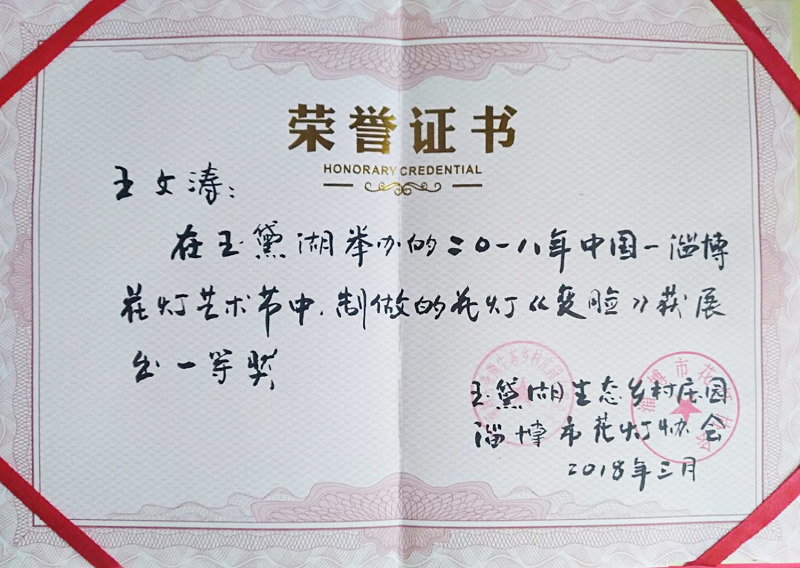 荣誉证书
HONORARY CREDENTIAL
王文涛：
在玉黛湖举办的二〇一八年中国—淄博
花灯艺术节中.制做的花灯《变脸》获展
出一等奖
玉黛湖生态乡村庄园
淄博市花灯协会
2018年三月